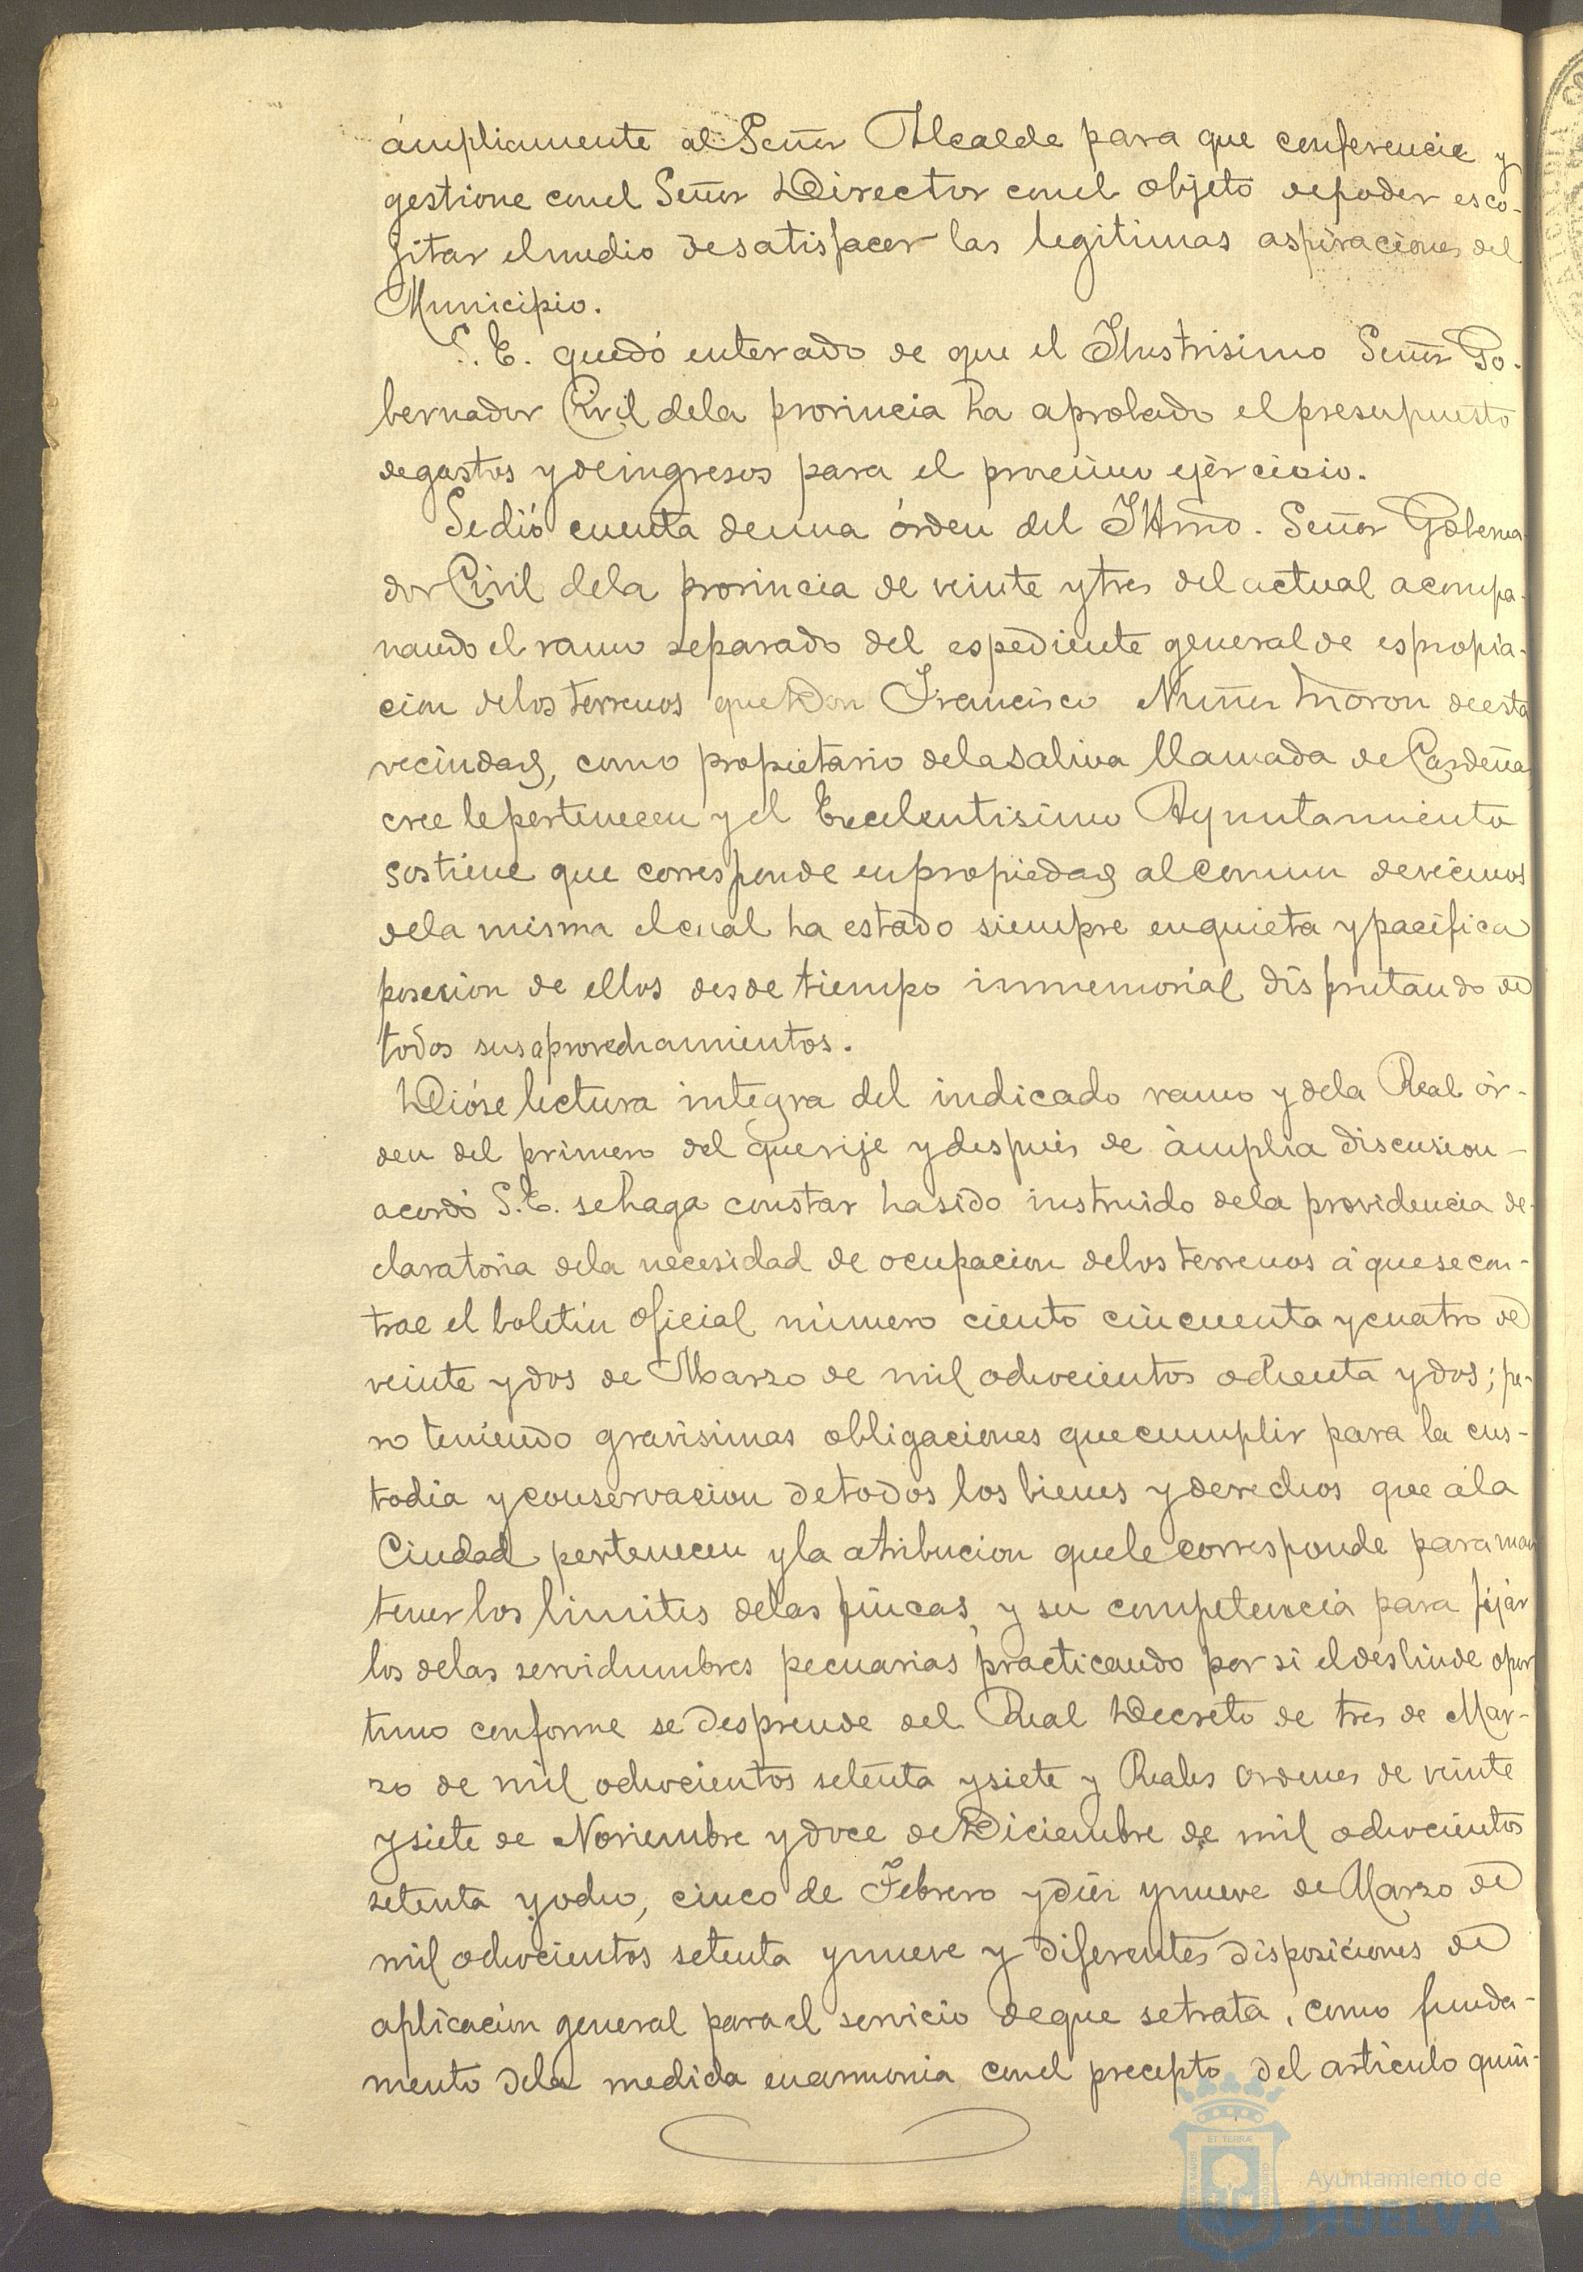 ámpliamente al Señor Alcalde para que conferencie y
gestione conel Señor Director conel objeto depoder esco-
jitar elmedio desatisfacer las legitimas aspiraciones del
Municipio.
S. E. quedó enterado de que el Ilustrisimo Señor Go-
bernador Civil dela provincia ha aprobado el presupuesto
degastos y deingresos para el procsimo ejercicio.
Sedió cuenta deuna órden del Iltmo. Señor Goberna-
dor Civil dela provincia de veinte y tres del actual acompa-
nando el ramo separado del espediente general de espropia-
cion delos terrenos que Don Francisco Nuñez Moron deesta
vecindad, como propietario delaSalina llamada de Cardeña,
cree lepertenecen y el Excelentisimo Ayuntamiento
sostiene que corresponde enpropiedad alcomun devecinos
dela misma elcual ha estado siempre enquieta y pacifica
posecion de ellos desde tiempo inmemorial disfrutando de
todos susaprovechamientos.
Dióse lectura integra del indicado ramo y dela Real ór-
den del primero del querije y despues de ámplia discusion-
acordó S.E. sehaga constar hasido instruido dela providencia de-
claratoria dela necesidad de ocupacion delos terrenos á quesecon-
trae el boletin oficial número ciento cincuenta ycuatro de
veinte ydos de Marzo de mil ochocientos ochenta ydos; pe-
ro teniendo gravisimas obligaciones quecumplir para la cus-
todia y conservacion detodos los bienes y derechos que ála
Ciudad pertenecen yla atribucion quele corresponde para man
tener los limites delas fincas, y su competencia para fijar
los delas servidumbres pecuarias practicando por si eldeslinde opor
tuno conforme se desprende del Real Decreto de tres de Mar-
zo de mil ochocientos setenta ysiete y Reales ordenes de veinte
ysiete de Noviembre ydoce deDiciembre de mil ochocientos
setenta yocho, cinco de Febrero ydiez ynueve de Marzo de
mil ochocientos setenta ynueve y diferentes disposiciones de
aplicacion general para el servicio deque setrata, como funda-
mento dela medida enarmonia conel precepto del artículo quin-
Ayuntamiento de
HUELVA